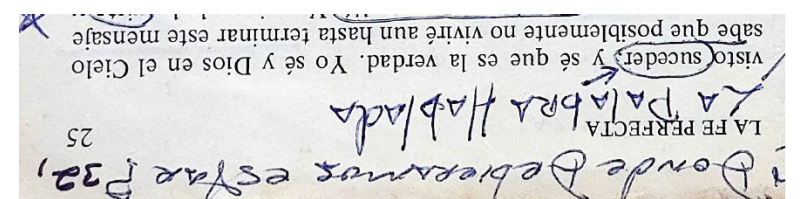 ¿Donde Debieramos estar P32,
LA FE PERFECTA 25
LA PALABRA HABLADA
visto suceder; y sé que es la verdad. Yo sé y Dios en el Cielo
sabe que posiblemente no viviré aun hasta terminar este mensaje